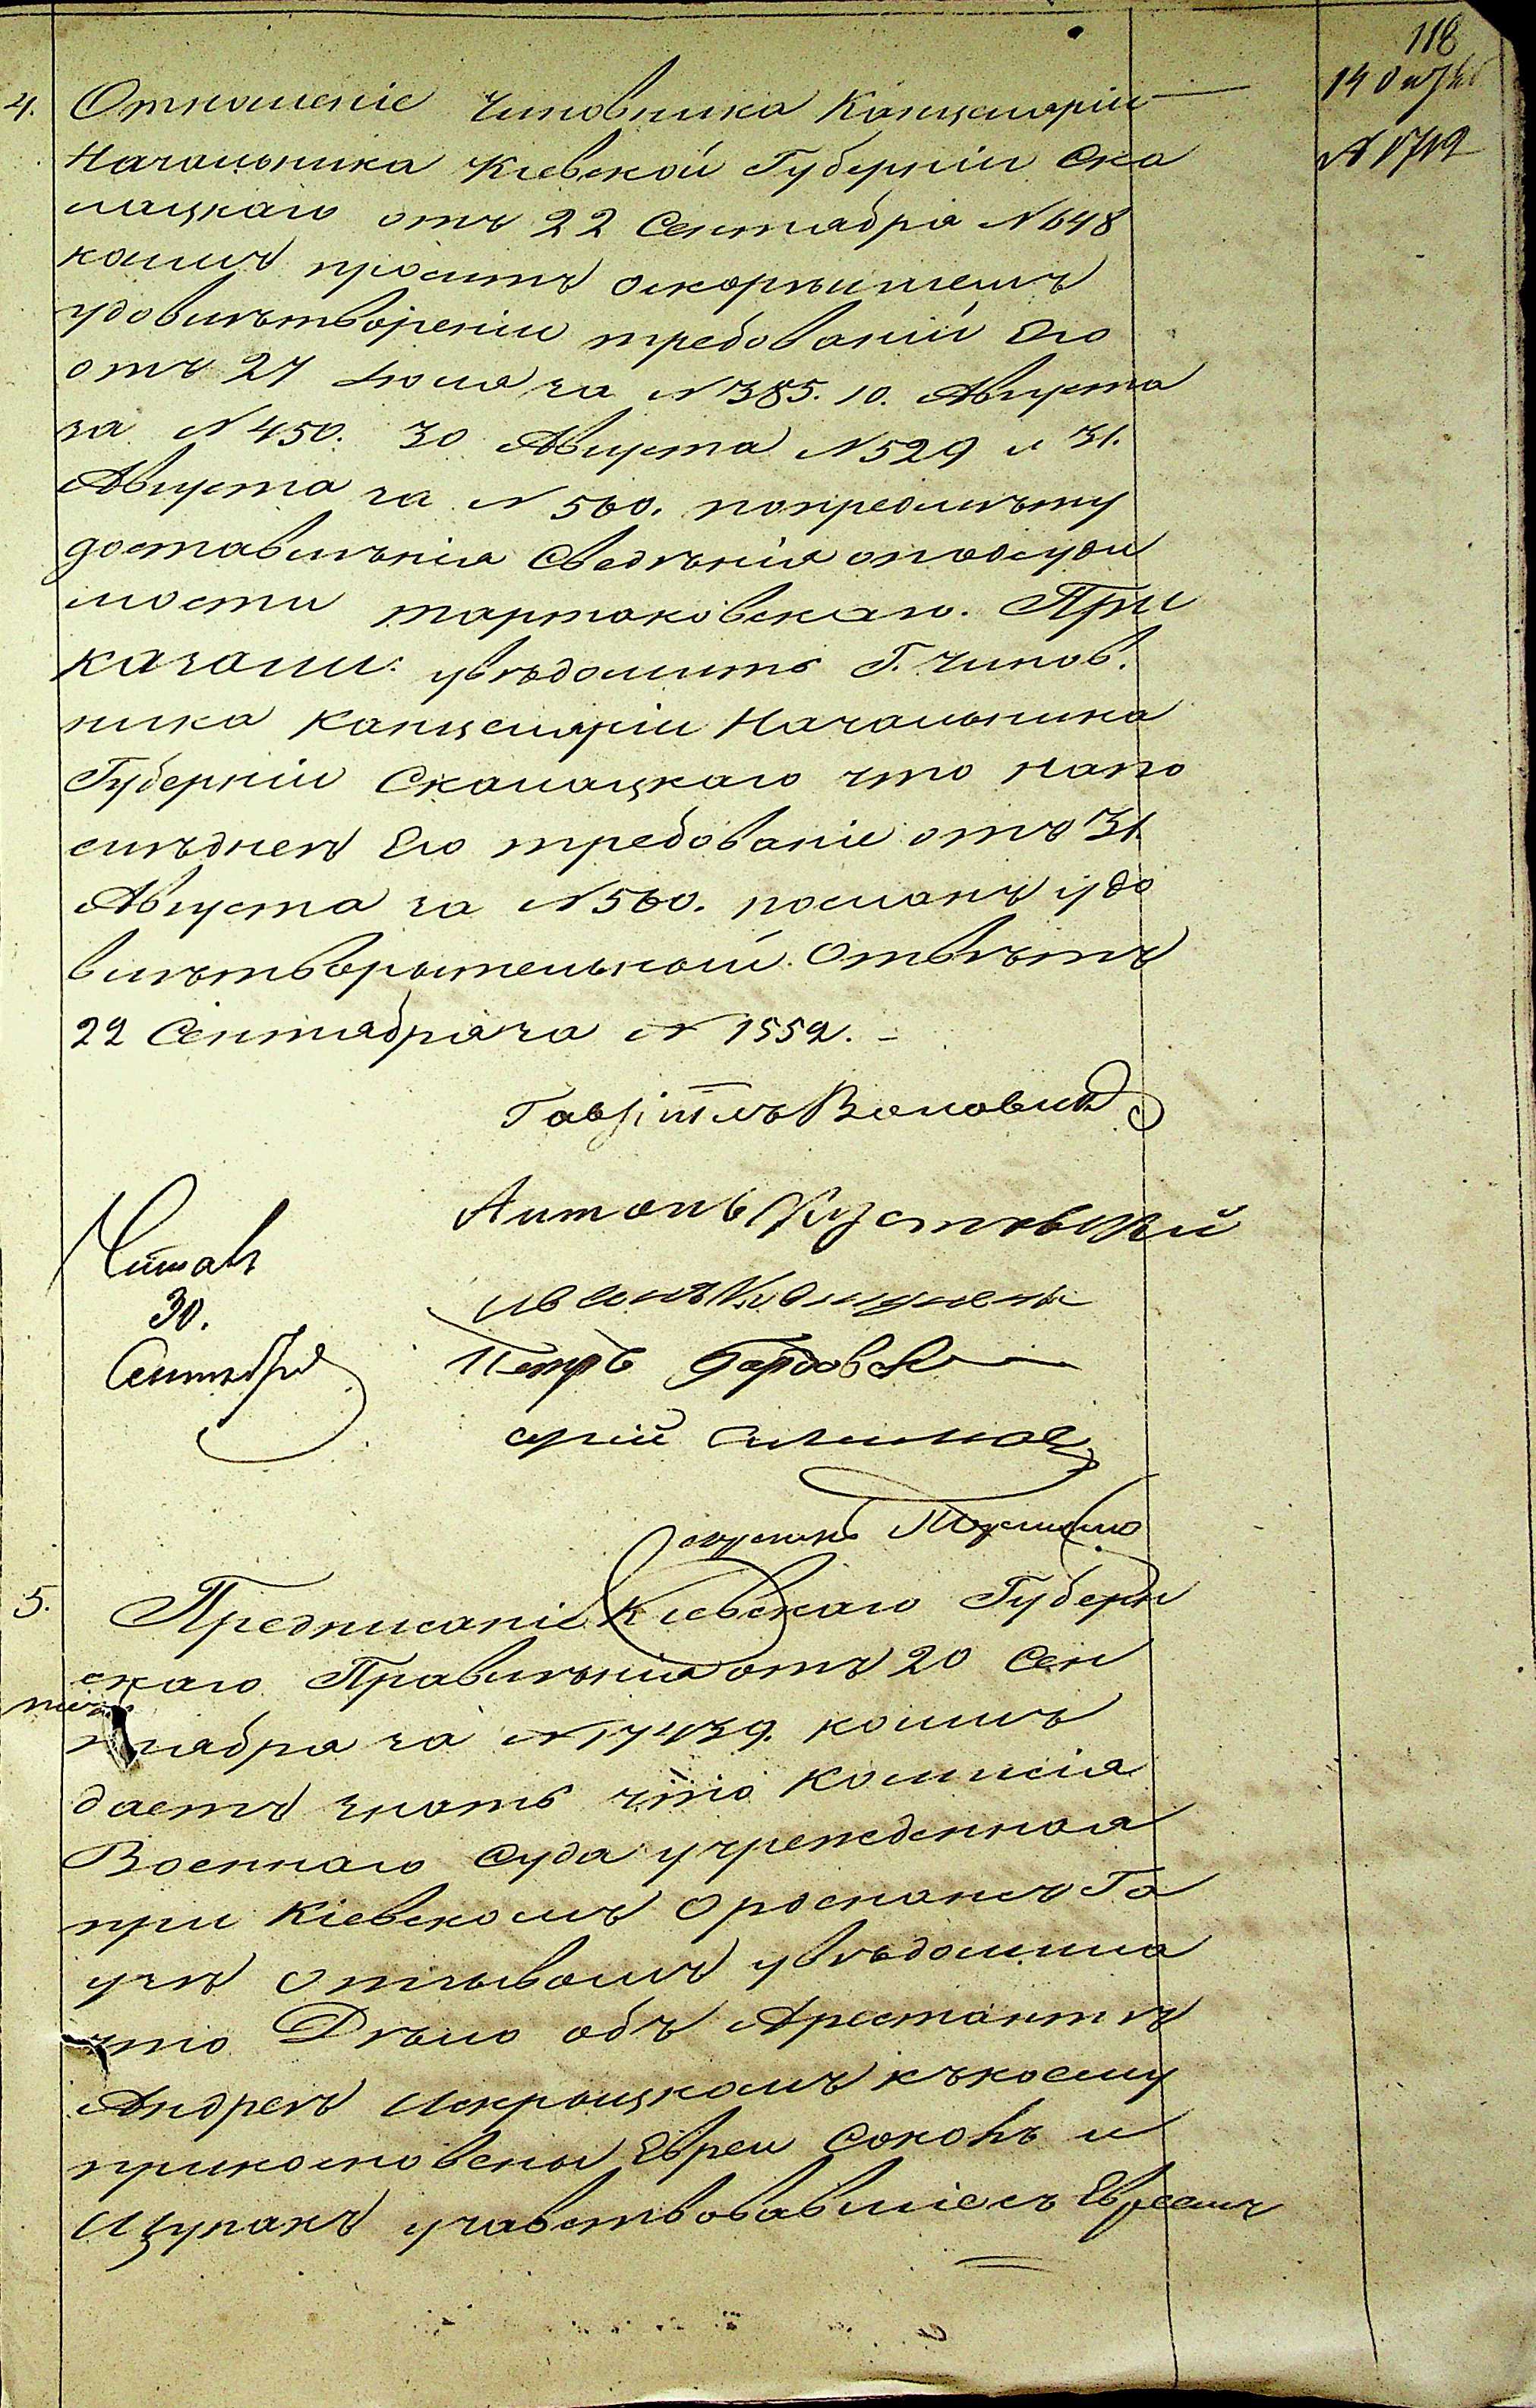 118
14 Октяб
№ 1712
4. Отношеніе чиновника Канцеляріи
Начальника Кіевской Губерніи Ска
лацкаго отъ 22 Сентабря №648
коимъ проситъ оскорѣишемъ
удовлѣтвореніи требованій Его
отъ 27 Іюля за №385. 10. Августа
за №450. 30 Августа №529 и 31.
Августа за №560. попредмѣту
доставлѣнія Сведѣнія оподсуди
мости тартаковскаго. При
казали: увѣдомить Г. Чинов.
ника Канцеляріи Начальника
Губерніи Скалацкаго что напо
слѣднее Его требованіе отъ 31.
Августа за №560. посланъ удо
влѣтворытельной Отвѣтъ
22 Сентабря за № 1552.
Антонъ
Читалъ
30.
Сентября
Петръ
5. Предписаніе Кіевскаго Губерн
скаго Правлѣнія отъ 20 Сен
тября за №17439. коимъ
даетъ знать что Комисія
Военнаго Суда учрежденная
при Кіевскомъ Ордонансъ Га
узѣ отзывомъ увѣдомила
что Дѣло объ Арестантѣ
Андреѣ Искрыцкомъ къкоему
прикосновены Евреи Соколъ и
Щупакъ учавствовавшіесъ Евреемъ